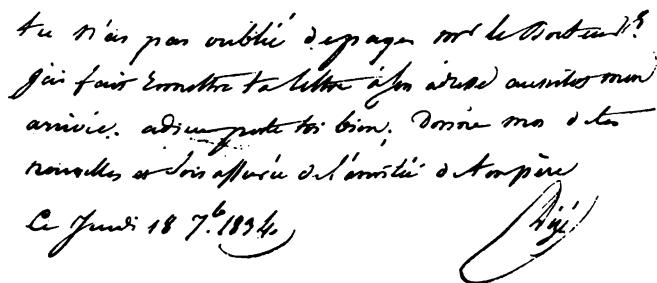 tu n'as pas oublié de payer mr le Docteur
j'ai fait remettre ta lettre à son adresse aussitot mon
arrivée. adieu porte toi bien. Donne moi de tes
nouvelles et sois assurée de l'amitié de ton père
Ce Jeudi 18 7.b 1834.